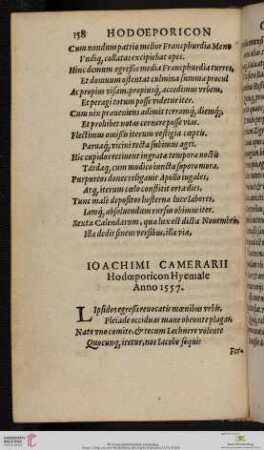 158 HODOEPORICON
Cum nondum patrio melior Francphurdia Meno
Vndiq, collatas excipiebat opes.
Hinc demum egreßis media Francphurdia turres,
Et domuum ostentat culmina summa procul
Ac propius visam, propiusq, accedimus vrbem,
Et peragi totum posse videtur iter.
Cum nix praeueniens adimit terramq, diemq;
Et prohibet notas cernere posse vias.
Flectimus ouisis iterum vestigia captis,
Paruaq, vicini tecta subimus agri.
Hic cupidos retinent ingrata tempora noctis
Tardaq, cum modico iuncta sopore mora.
Purpureos donec religauit Apollo iugales,
Atq, iterum caelo constitit orta dies,
Tunc male depositos hesterna luce labores,
Iamq, absoluendum rursus obimus iter.
Sexta Calendarum, qua lux est dicta Nouembris,
Illa dedit finem versibus, illa viae.
IOACHIMI CAMERARII
Hodoeporicon Hyemale
Anno 1557.
LIpsidos egreßi reuocatis moenibus vrbis,
Pleiade occiduas mane obeunte plagas,
Nato vno comite, & tecum Lechnere volente
Quocunq, iretur, nos Iacobe sequi